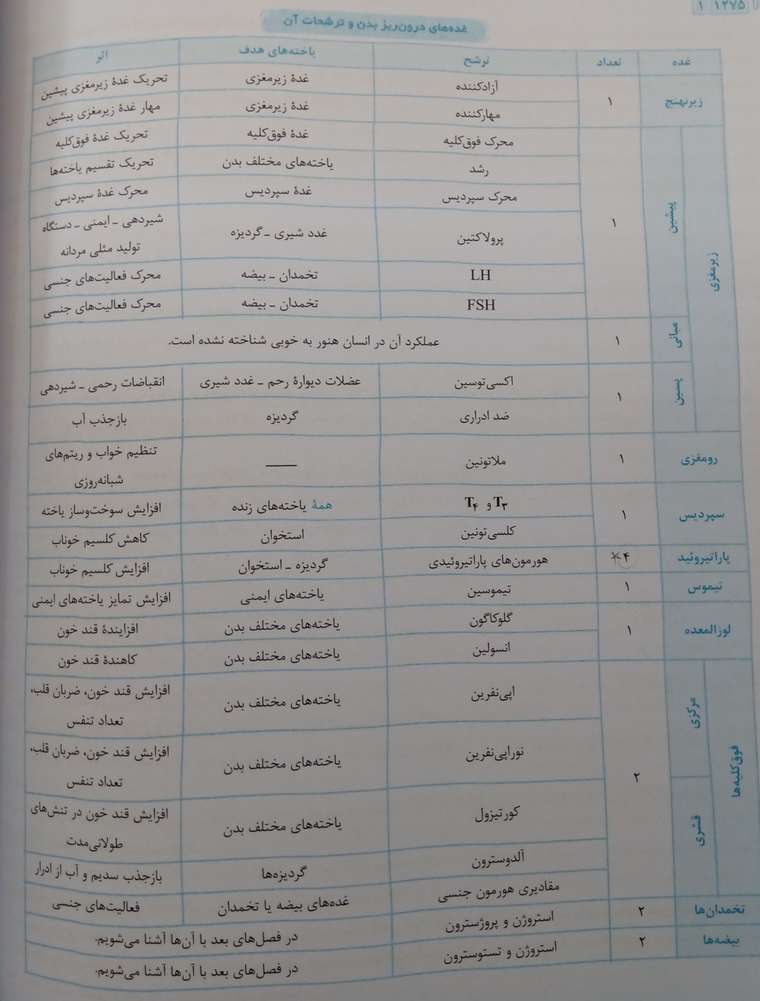 ۱۲۷۵ ۱
غده‌های درون‌ریز بدن و ترشحات آن
غده تعداد ترشح یاخته‌های هدف اثر
زیرنهنج ۱ آزادکننده غدهٔ زیرمغزی تحریک غدهٔ زیرمغزی پیشین
مهارکننده غدهٔ زیرمغزی مهار غدهٔ زیرمغزی پیشین
زیرمغزی پیشین ۱ محرک فوق‌کلیه غدهٔ فوق‌کلیه تحریک غدهٔ فوق‌کلیه
رشد یاخته‌های مختلف بدن تحریک تقسیم یاخته‌ها
محرک سپردیس غدهٔ سپردیس محرک غدهٔ سپردیس
پرولاکتین غدد شیری ـ گردیزه شیردهی ـ ایمنی ـ دستگاه
تولید مثلی مردانه
LH تخمدان ـ بیضه محرک فعالیت‌های جنسی
FSH تخمدان ـ بیضه محرک فعالیت‌های جنسی
میانی ۱ عملکرد آن در انسان هنور به خوبی شناخته نشده است.
پسین ۱ اکسی‌توسین عضلات دیوارهٔ رحم ـ غدد شیری انقباضات رحمی ـ شیردهی
ضد ادراری گردیزه بازجذب آب
رومغزی ۱ ملاتونین —— تنظیم خواب و ریتم‌های
شبانه‌روزی
سپردیس ۱ T۳ و T۴ همهٔ یاخته‌های زنده افزایش سوخت‌وساز یاخته
کلسی‌تونین استخوان کاهش کلسیم خوناب
پاراتیروئید ۴* هورمون‌های پاراتیروئیدی گردیزه ـ استخوان افزایش کلسیم خوناب
تیموس ۱ تیموسین یاخته‌های ایمنی افزایش تمایز یاخته‌های ایمنی
لوزالمعده ۱ گلوکاگون یاخته‌های مختلف بدن افزایندهٔ قند خون
انسولین یاخته‌های مختلف بدن کاهندهٔ قند خون
فوق‌کلیه‌ها مرکزی ۲ اپی‌نفرین یاخته‌های مختلف بدن افزایش قند خون، ضربان قلب،
تعداد تنفس
نوراپی‌نفرین یاخته‌های مختلف بدن افزایش قند خون، ضربان قلب،
تعداد تنفس
قشری کورتیزول یاخته‌های مختلف بدن افزایش قند خون در تنش‌های
طولانی‌مدت
آلدوسترون گردیزه‌ها بازجذب سدیم و آب از ادرار
مقادیری هورمون جنسی غده‌های بیضه یا تخمدان فعالیت‌های جنسی
تخمدان‌ها ۲ استروژن و پروژسترون در فصل‌های بعد با آن‌ها آشنا می‌شویم.
بیضه‌ها ۲ استروژن و تستوسترون در فصل‌های بعد با آن‌ها آشنا می‌شویم.